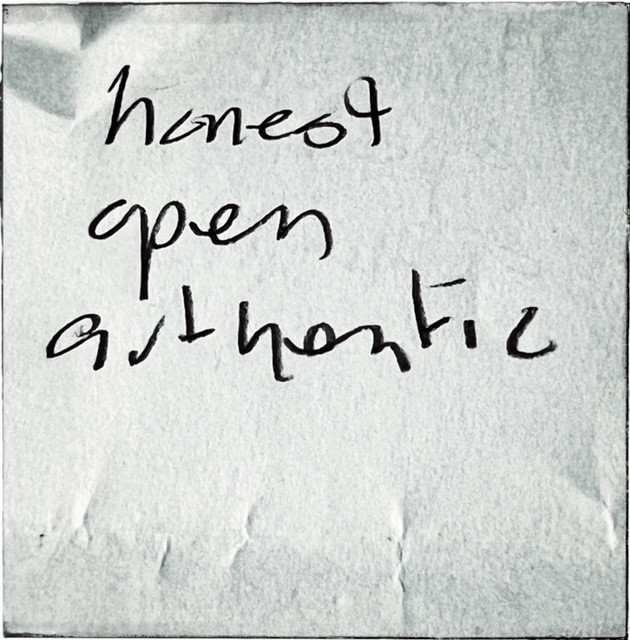 honest
open
authentic